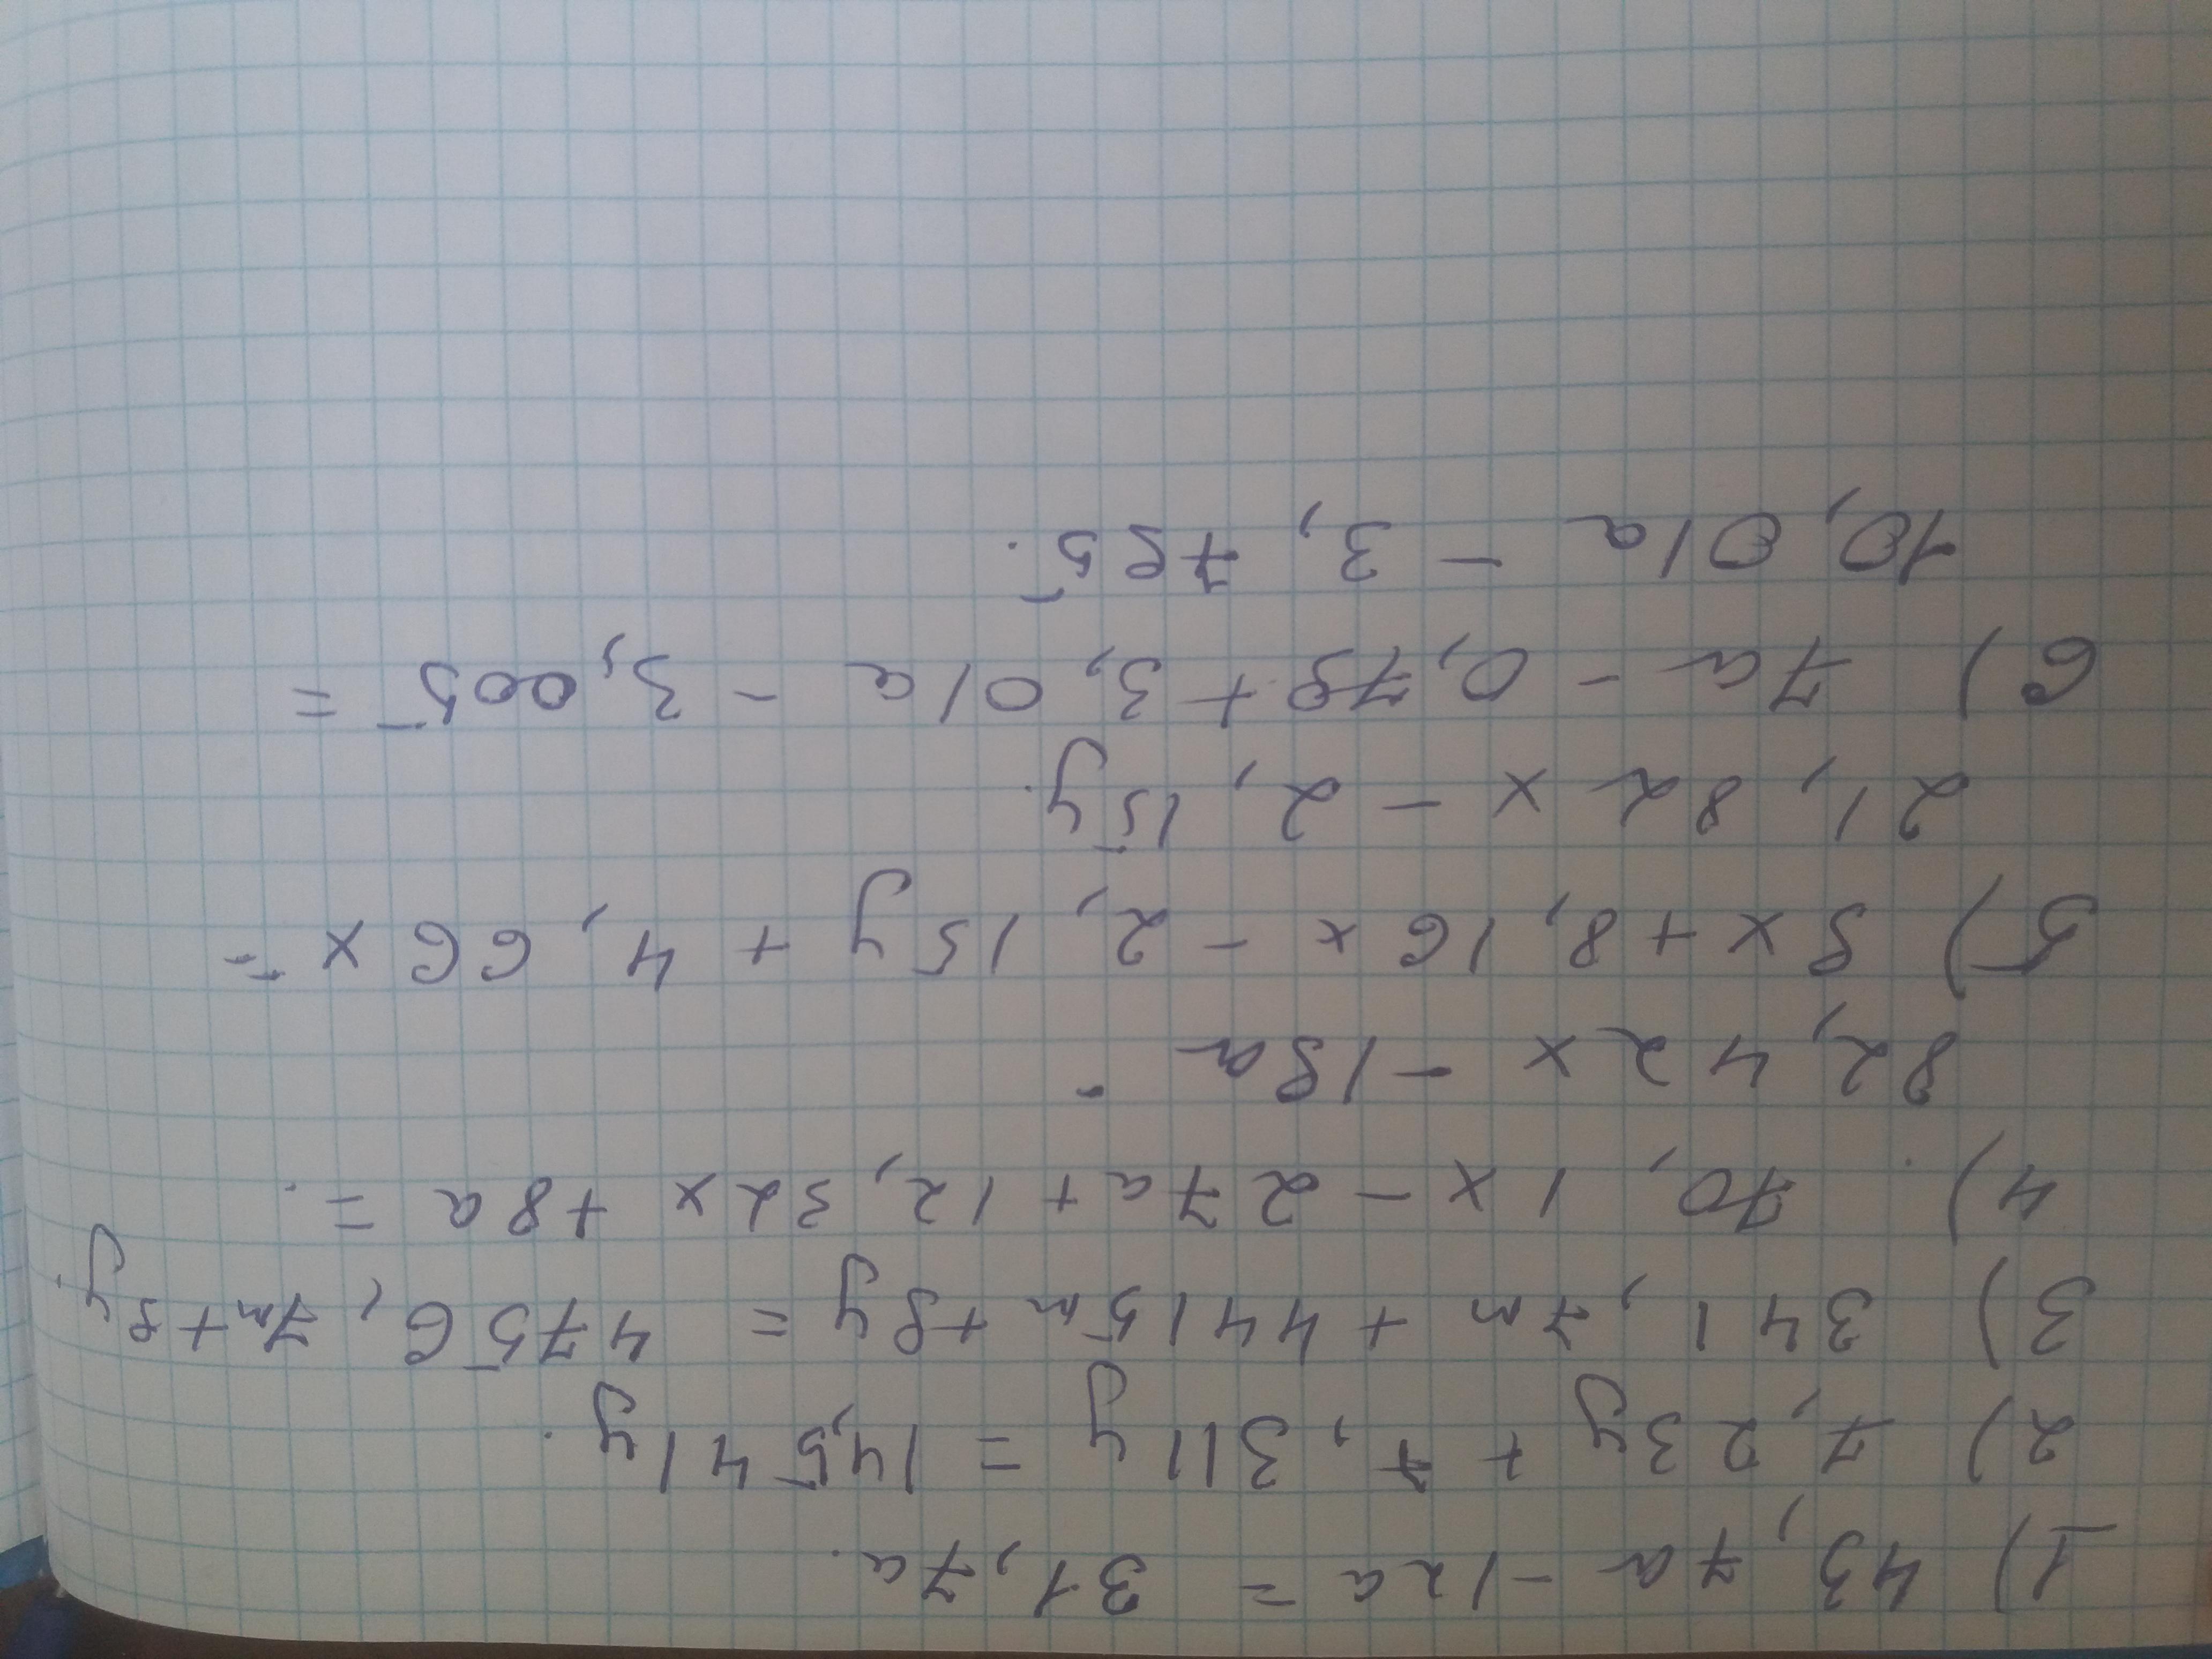 1) 43,7a - 12a = 31,7a.
2) 7,23y + 7,311y = 14,541y.
3) 341,7m + 4415m + 8y = 4756,7m + 8y.
4) 70,1x - 27a + 12,32x + 8a =
82,42x - 19a.
5) 9x + 8,16x - 2,15y + 4,66x =
21,82x - 2,15y.
6) 7a - 0,78 + 3,01a - 3,005 =
10,01a - 3,785.